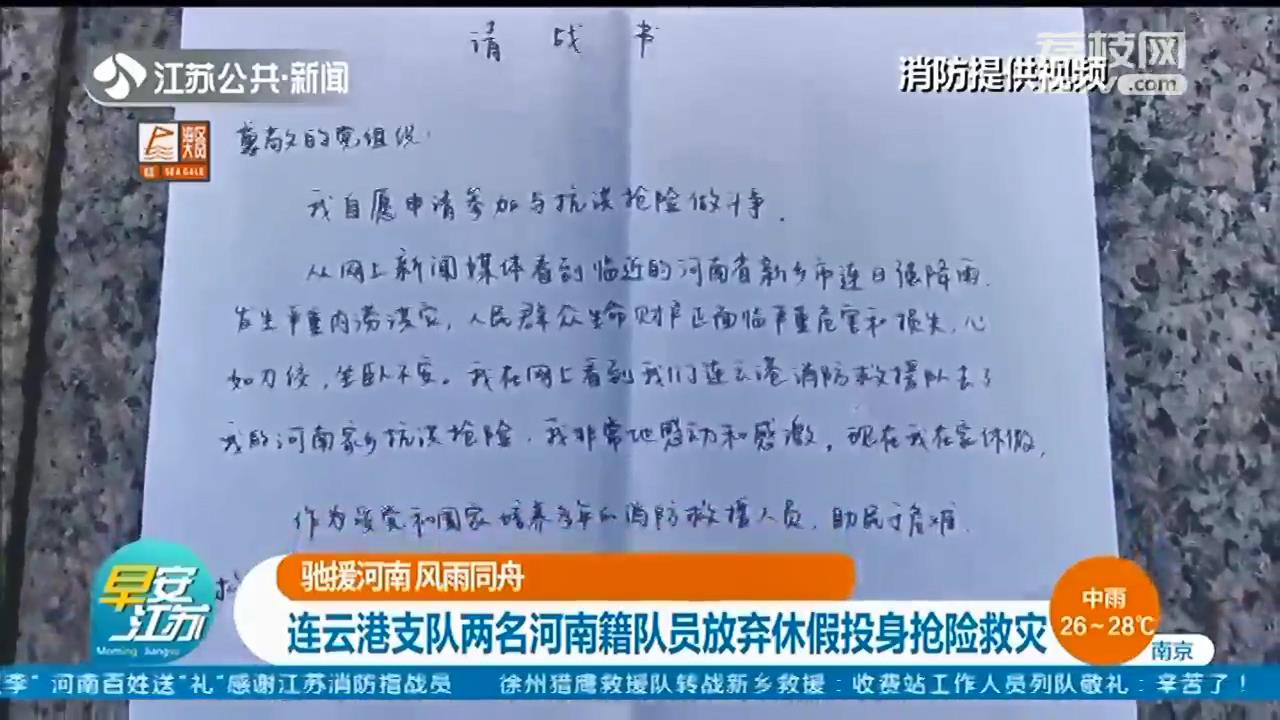 请战书
江苏公共·新闻
荔枝网
.com
消防提供视频
SEA GALE
尊敬的党组织:
我自愿申请参加与抗洪抢险做斗争.
从网上新闻媒体看到临近的河南省新乡市连日强降雨.
发生严重内涝洪灾,人民群众生命财产正面临严重危害和损失,心
如刀绞,坐卧不安。我在网上看到我们连云港消防救援队去了
我的河南家乡抗洪抢险.我非常地感动和感激,现在我在家休假,
作为受党和国家培养多年的消防救援人员,助民于危难.
早安江苏
Morning Jiangsu
驰援河南 风雨同舟
连云港支队两名河南籍队员放弃休假投身抢险救灾
中雨
26~28℃
南京
季”河南百姓送“礼”感谢江苏消防指战员 徐州猎鹰救援队转战新乡救援:收费站工作人员列队敬礼:辛苦了!